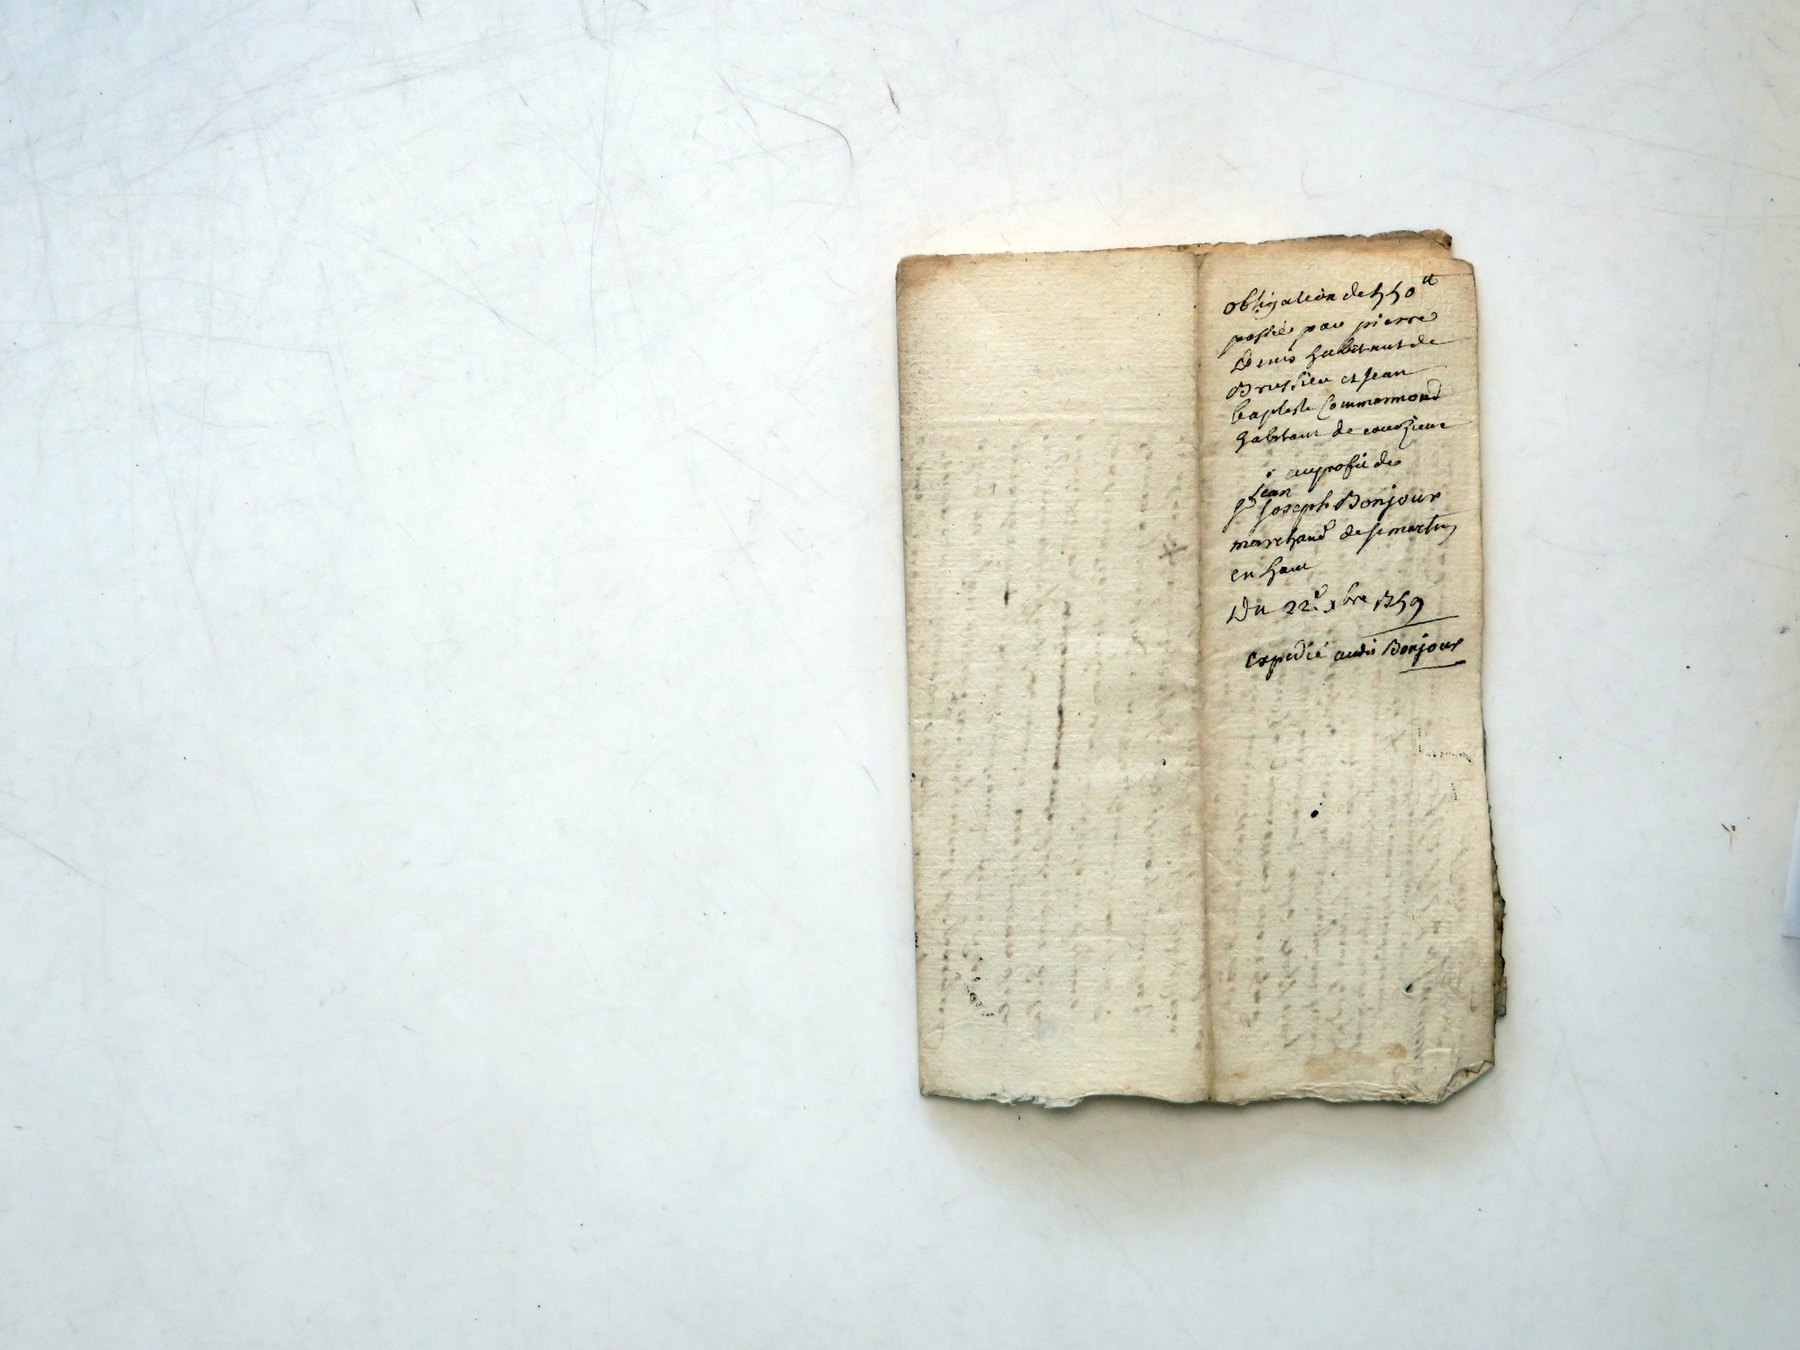 obligation de 550ᵗᵗ
passée par pierre
Denis habitant de
Brussieu et jean
baptiste Commarmond
habitant de courzieu
au profit de
jean
sʳ joseph Bonjour
marchand de st martin
en haut
Du 22ᵉ xbre 1759
expedié audit Bonjour